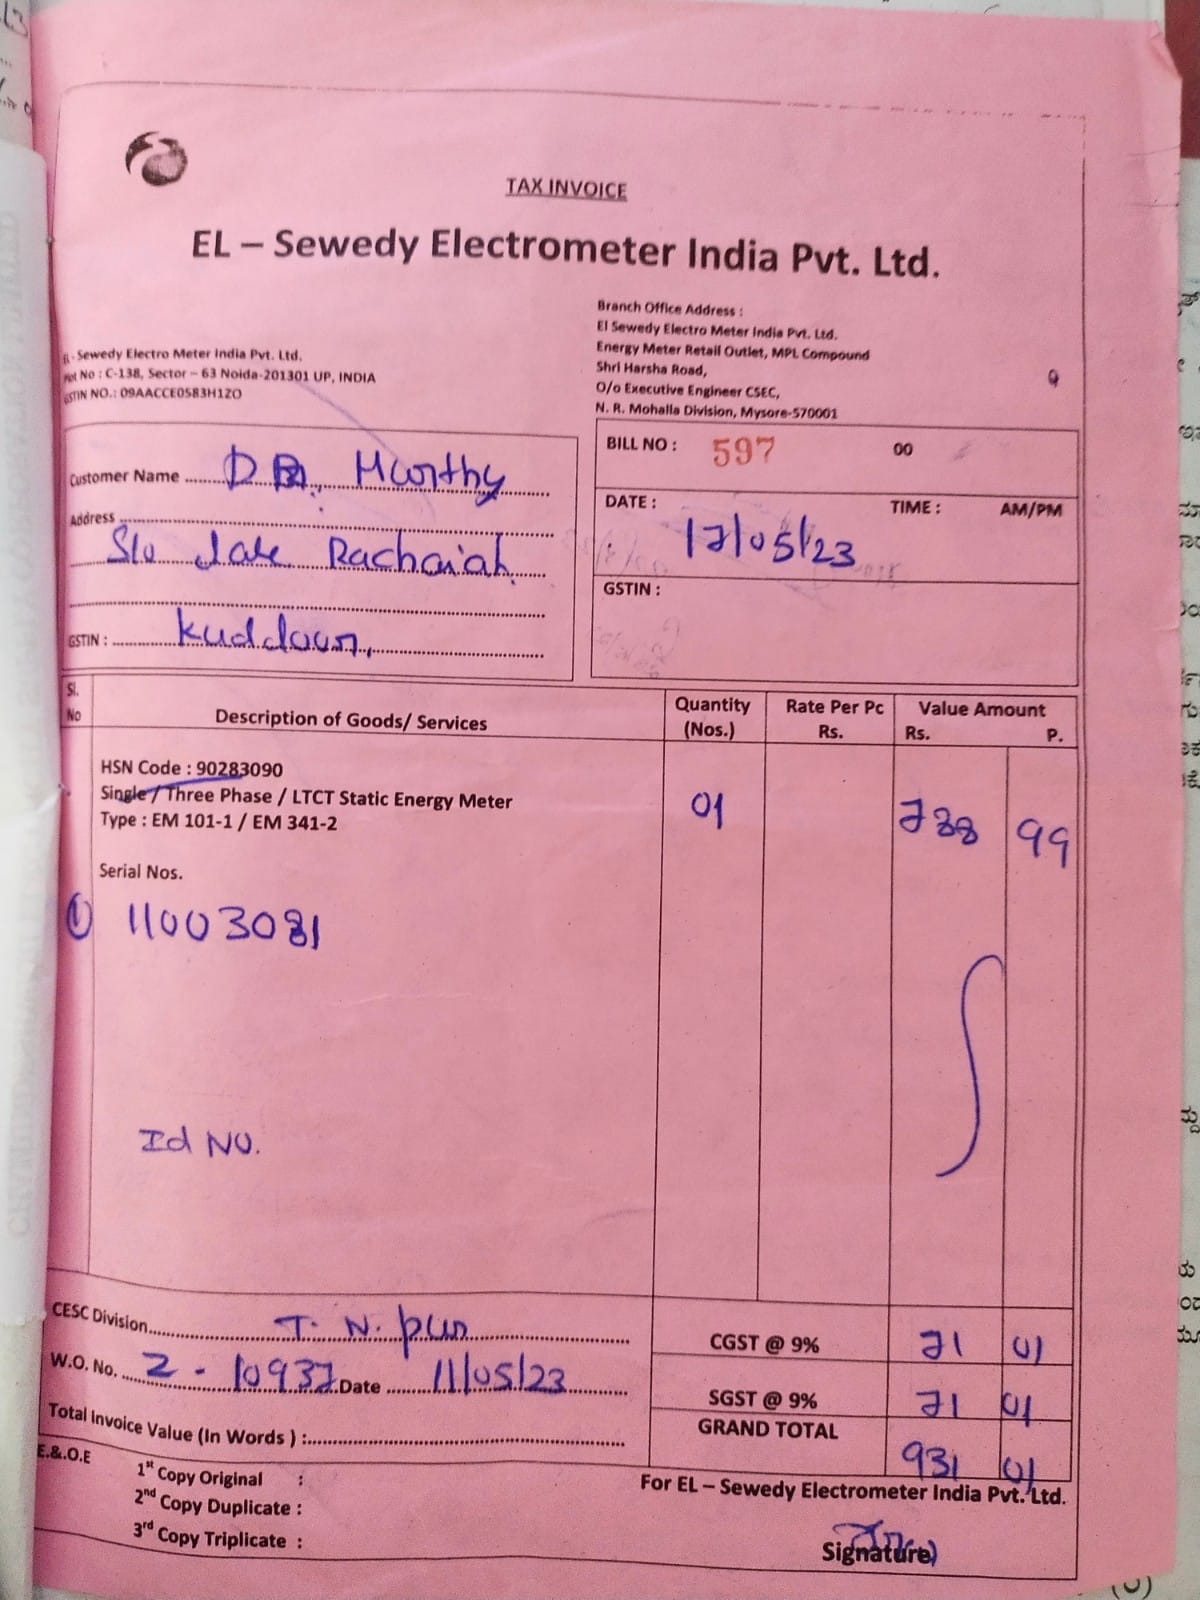 TAX INVOICE
EL – Sewedy Electrometer India Pvt. Ltd.
Branch Office Address :
El Sewedy Electro Meter India Pvt. Ltd.
Energy Meter Retail Outlet, MPL Compound
Shri Harsha Road,
O/o Executive Engineer CSEC,
N. R. Mohalla Division, Mysore-570001
- Sewedy Electro Meter India Pvt. Ltd.
No : C-138, Sector – 63 Noida-201301 UP, INDIA
GSTIN NO.: 09AACCE0583H1ZO
Customer Name Murthy
Address
S/o late Rachaiah
GSTIN :
BILL NO : 597 00
DATE : TIME : AM/PM
17/05/23
GSTIN :
Sl. No Description of Goods/ Services Quantity (Nos.) Rate Per Pc Rs. Value Amount Rs. P.
HSN Code : 90283090
Single / Three Phase / LTCT Static Energy Meter 01 788 99
Type : EM 101-1 / EM 341-2
Serial Nos.
1 11003081
Id No.
CESC Division T. N. pur
CGST @ 9% 71 01
W.O. No. 2 - 10937 Date 11/05/23
SGST @ 9% 71 01
Total Invoice Value (In Words ) :
GRAND TOTAL 931 01
E.&.O.E
1st Copy Original :
2nd Copy Duplicate :
3rd Copy Triplicate :
For EL – Sewedy Electrometer India Pvt. Ltd.
Signature